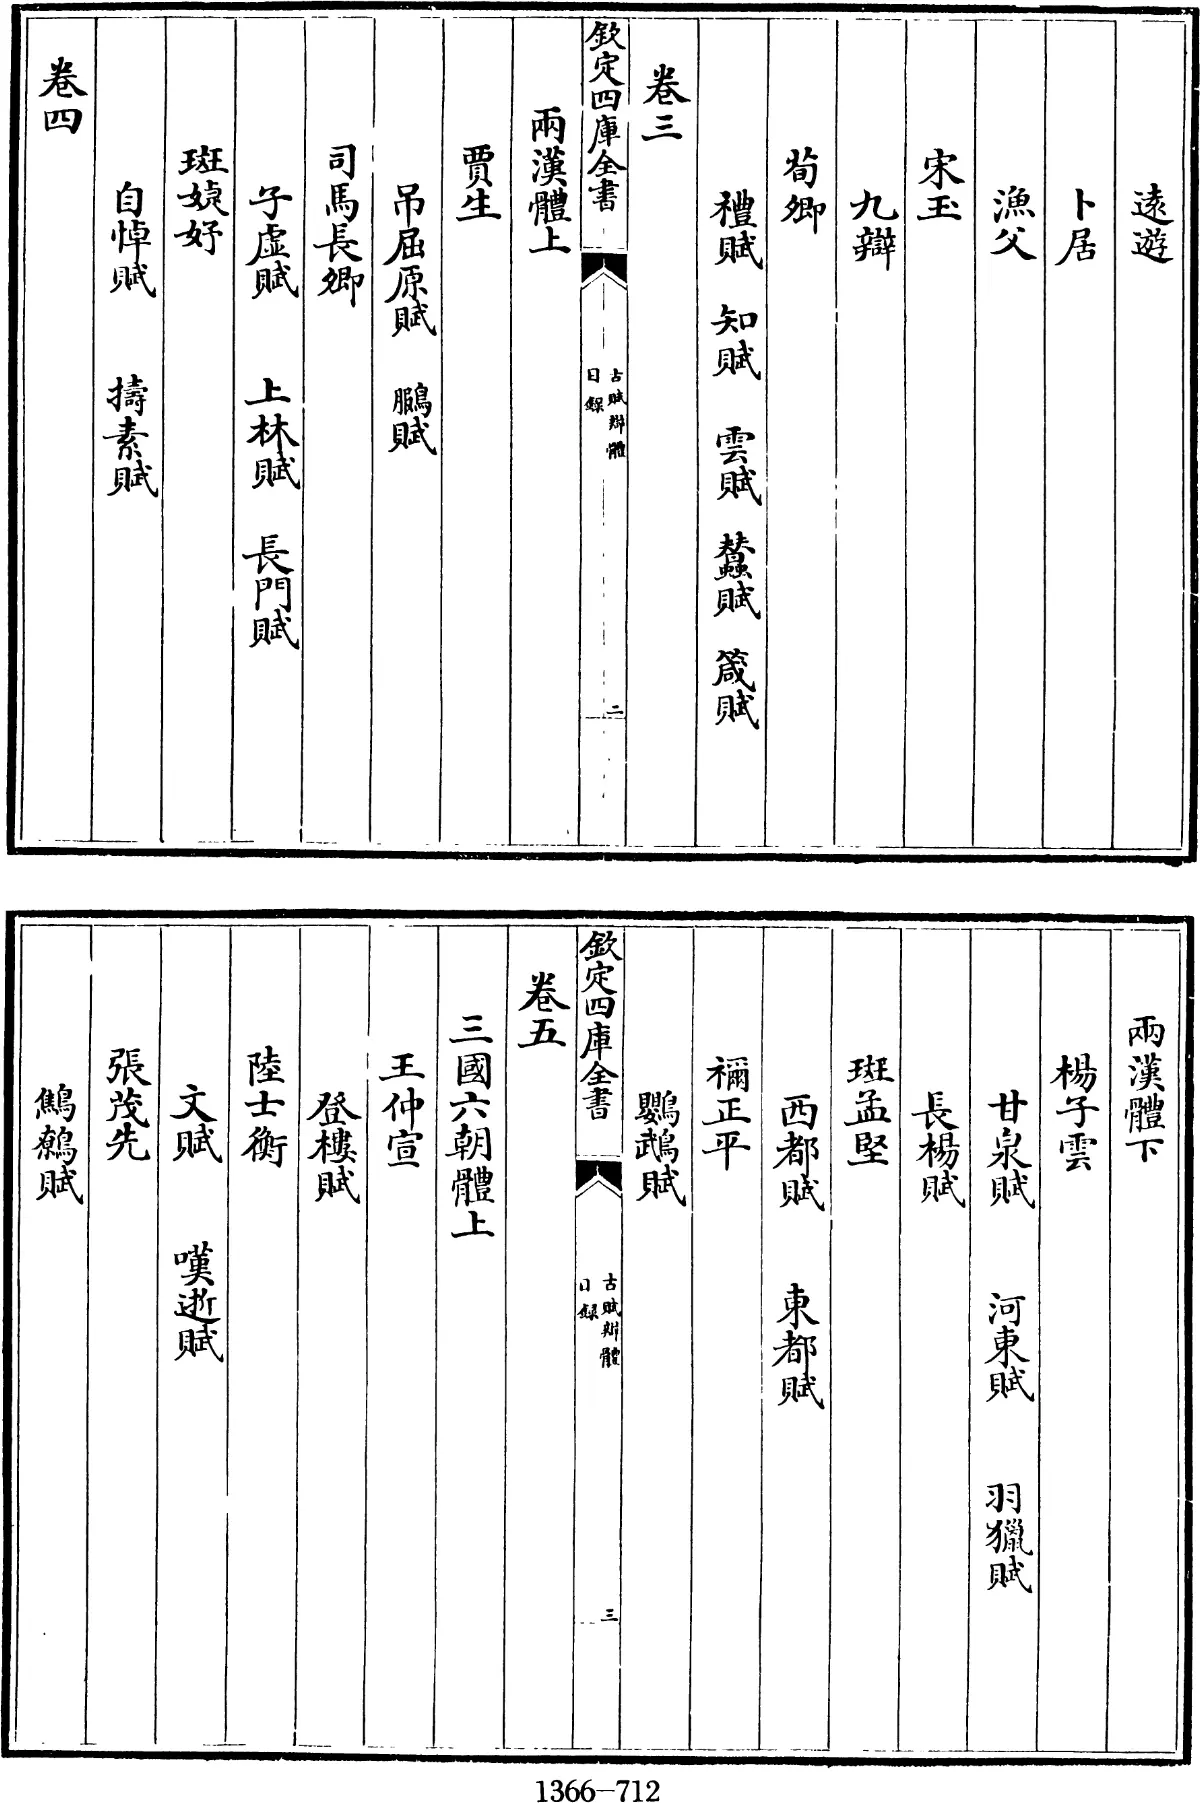 遠遊
卜居
漁父
宋玉
九辯
荀卿
禮賦 知賦 雲賦 蠶賦 箴賦
卷三
欽定四庫全書
古賦辯體
目錄
二
兩漢體上
賈生
弔屈原賦 鵩賦
司馬長卿
子虛賦 上林賦 長門賦
班婕妤
自悼賦 擣素賦
卷四
兩漢體下
楊子雲
甘泉賦 河東賦 羽獵賦
長楊賦
班孟堅
西都賦 東都賦
禰正平
鸚鵡賦
欽定四庫全書
古賦辯體
目錄
三
卷五
三國六朝體上
王仲宣
登樓賦
陸士衡
文賦 嘆逝賦
張茂先
鷦鷯賦
1366-712